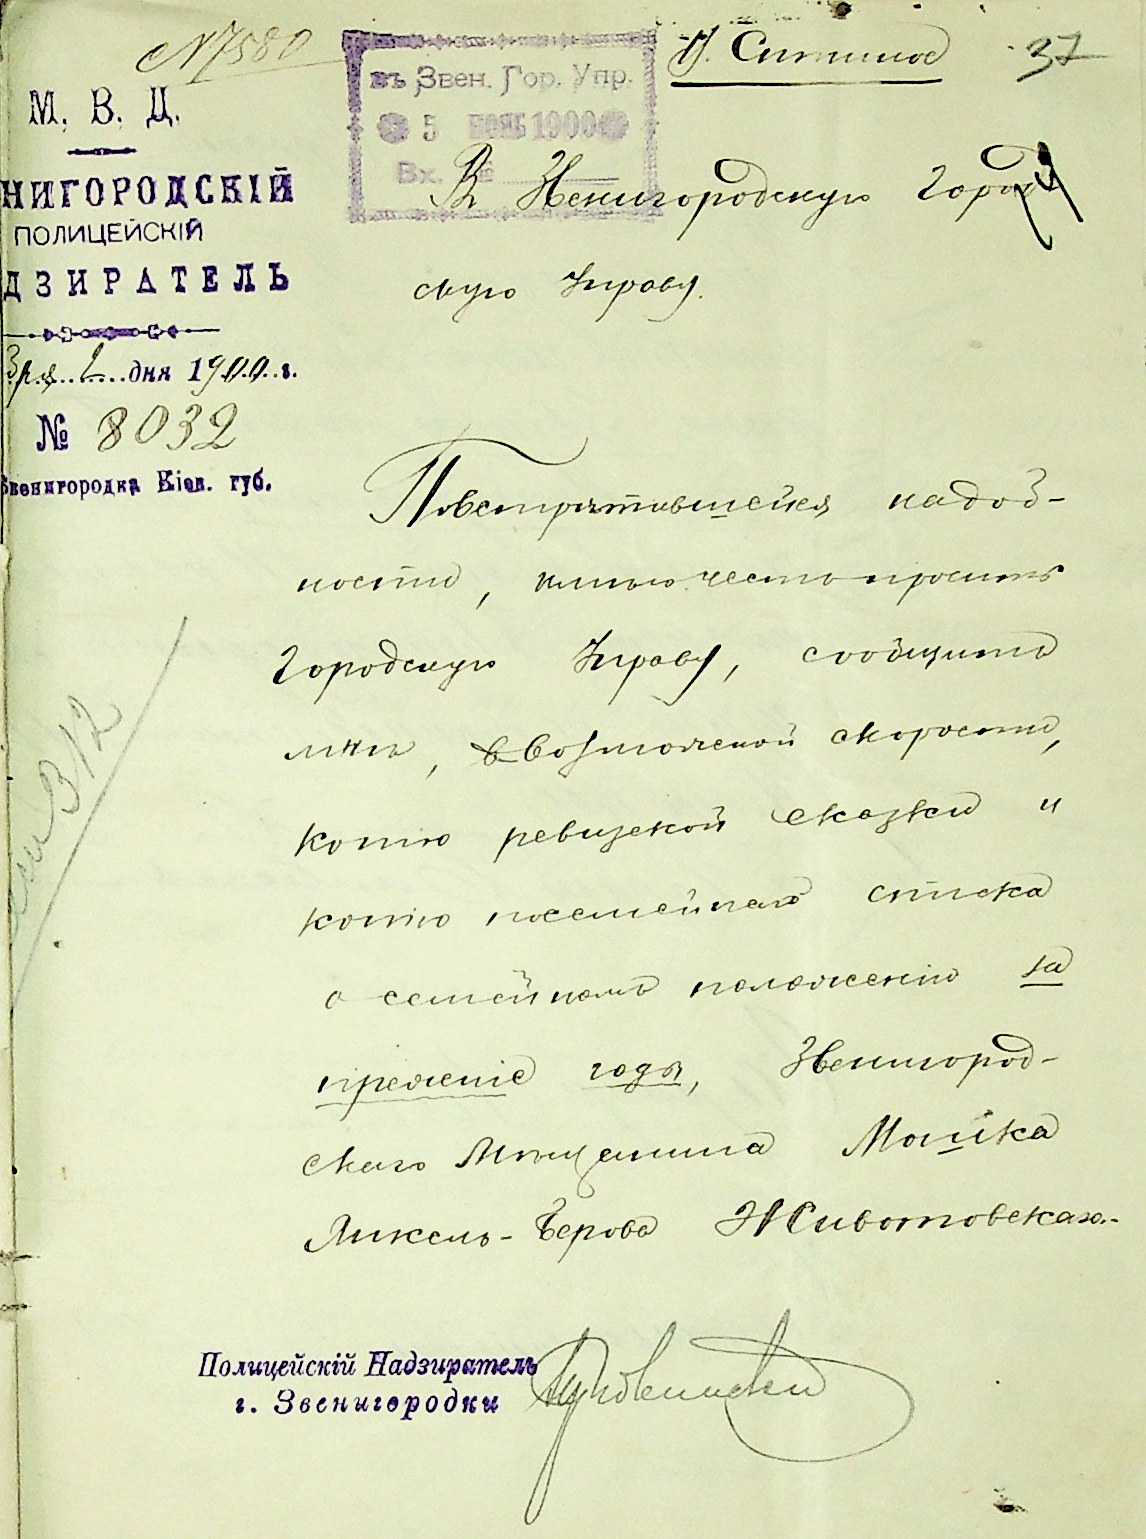 № 7580
въ Звен. Гор. Упр.
5 НОЯБ 1900
Вх. №
37
М. В. Д.
НИГОРОДСКІЙ
ПОЛИЦЕЙСКІЙ
ДЗИРАТЕЛЬ
2 дня 1900 г.
№ 8032
Звенигородка Кіев. губ.
В Звенигородскую Город
скую Управу.
Повстрѣтившейся надоб-
ности, имѣю честь просить
Городскую Управу, сообщить
мнѣ, в возможной скорости,
копію ревизской сказки и
копію посемейнаго списка
о семейномъ положеніи за
прежніе годы, Звенигород-
скаго Мѣщанина Мошка
Ликель-Берова Животовскаго.
312
Полицейскій Надзиратель
г. Звенигородки